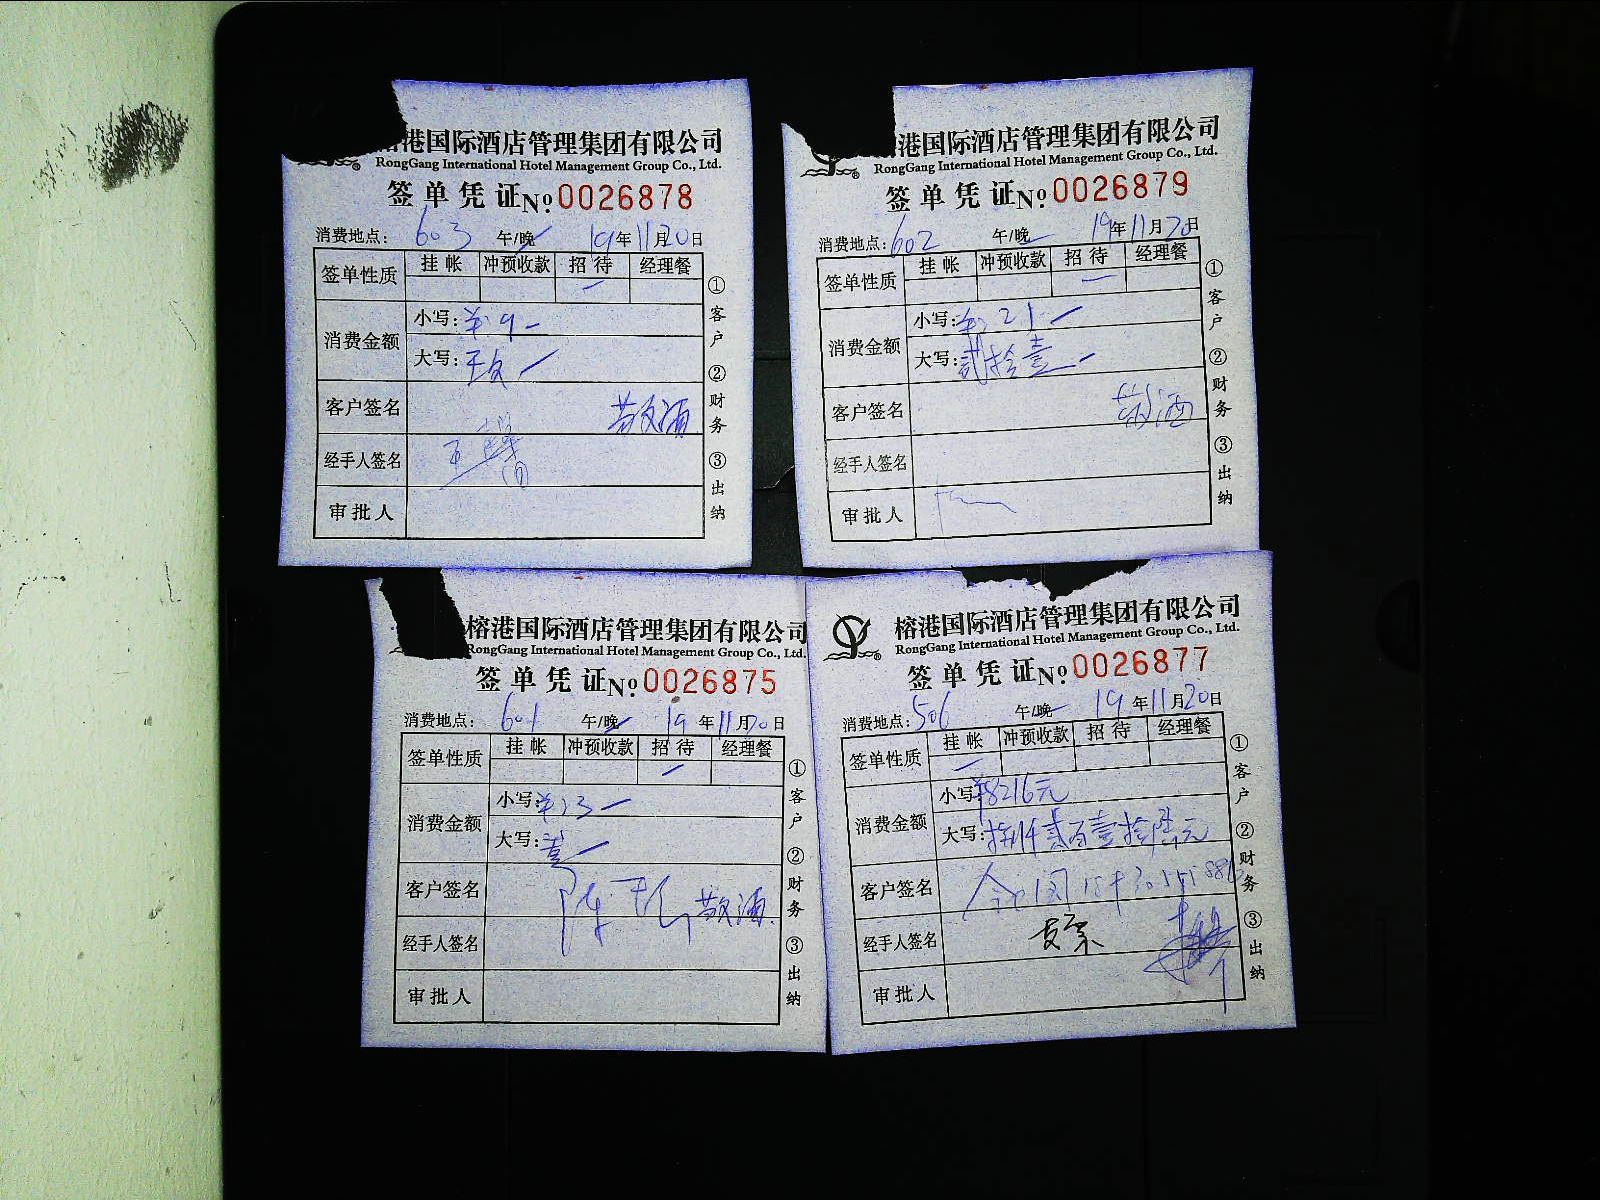 港国际酒店管理集团有限公司
RongGang International Hotel Management Group Co., Ltd.
签单凭证№0026878
消费地点: 603 午/晚 19年11月20日
签单性质 挂帐 冲预收款 招待 经理餐
消费金额 小写: ¥: 9-
大写:
客户签名 敬酒
经手人签名
审批人
①客户 ②财务 ③出纳
港国际酒店管理集团有限公司
RongGang International Hotel Management Group Co., Ltd.
签单凭证№0026879
消费地点: 602 午/晚 19年11月20日
签单性质 挂帐 冲预收款 招待 经理餐
消费金额 小写: ¥: 21-
大写: 贰拾壹-
客户签名 敬酒
经手人签名
审批人
①客户 ②财务 ③出纳
榕港国际酒店管理集团有限公司
RongGang International Hotel Management Group Co., Ltd.
签单凭证№0026875
消费地点: 601 午/晚 19年11月20日
签单性质 挂帐 冲预收款 招待 经理餐
消费金额 小写: ¥: 3-
大写:
客户签名 敬酒
经手人签名
审批人
①客户 ②财务 ③出纳
榕港国际酒店管理集团有限公司
RongGang International Hotel Management Group Co., Ltd.
签单凭证№0026877
消费地点: 506 午/晚 19年11月20日
签单性质 挂帐 冲预收款 招待 经理餐
消费金额 小写: ¥8216元
大写: 捌仟贰百壹拾陆元
客户签名
经手人签名 支票
审批人
①客户 ②财务 ③出纳